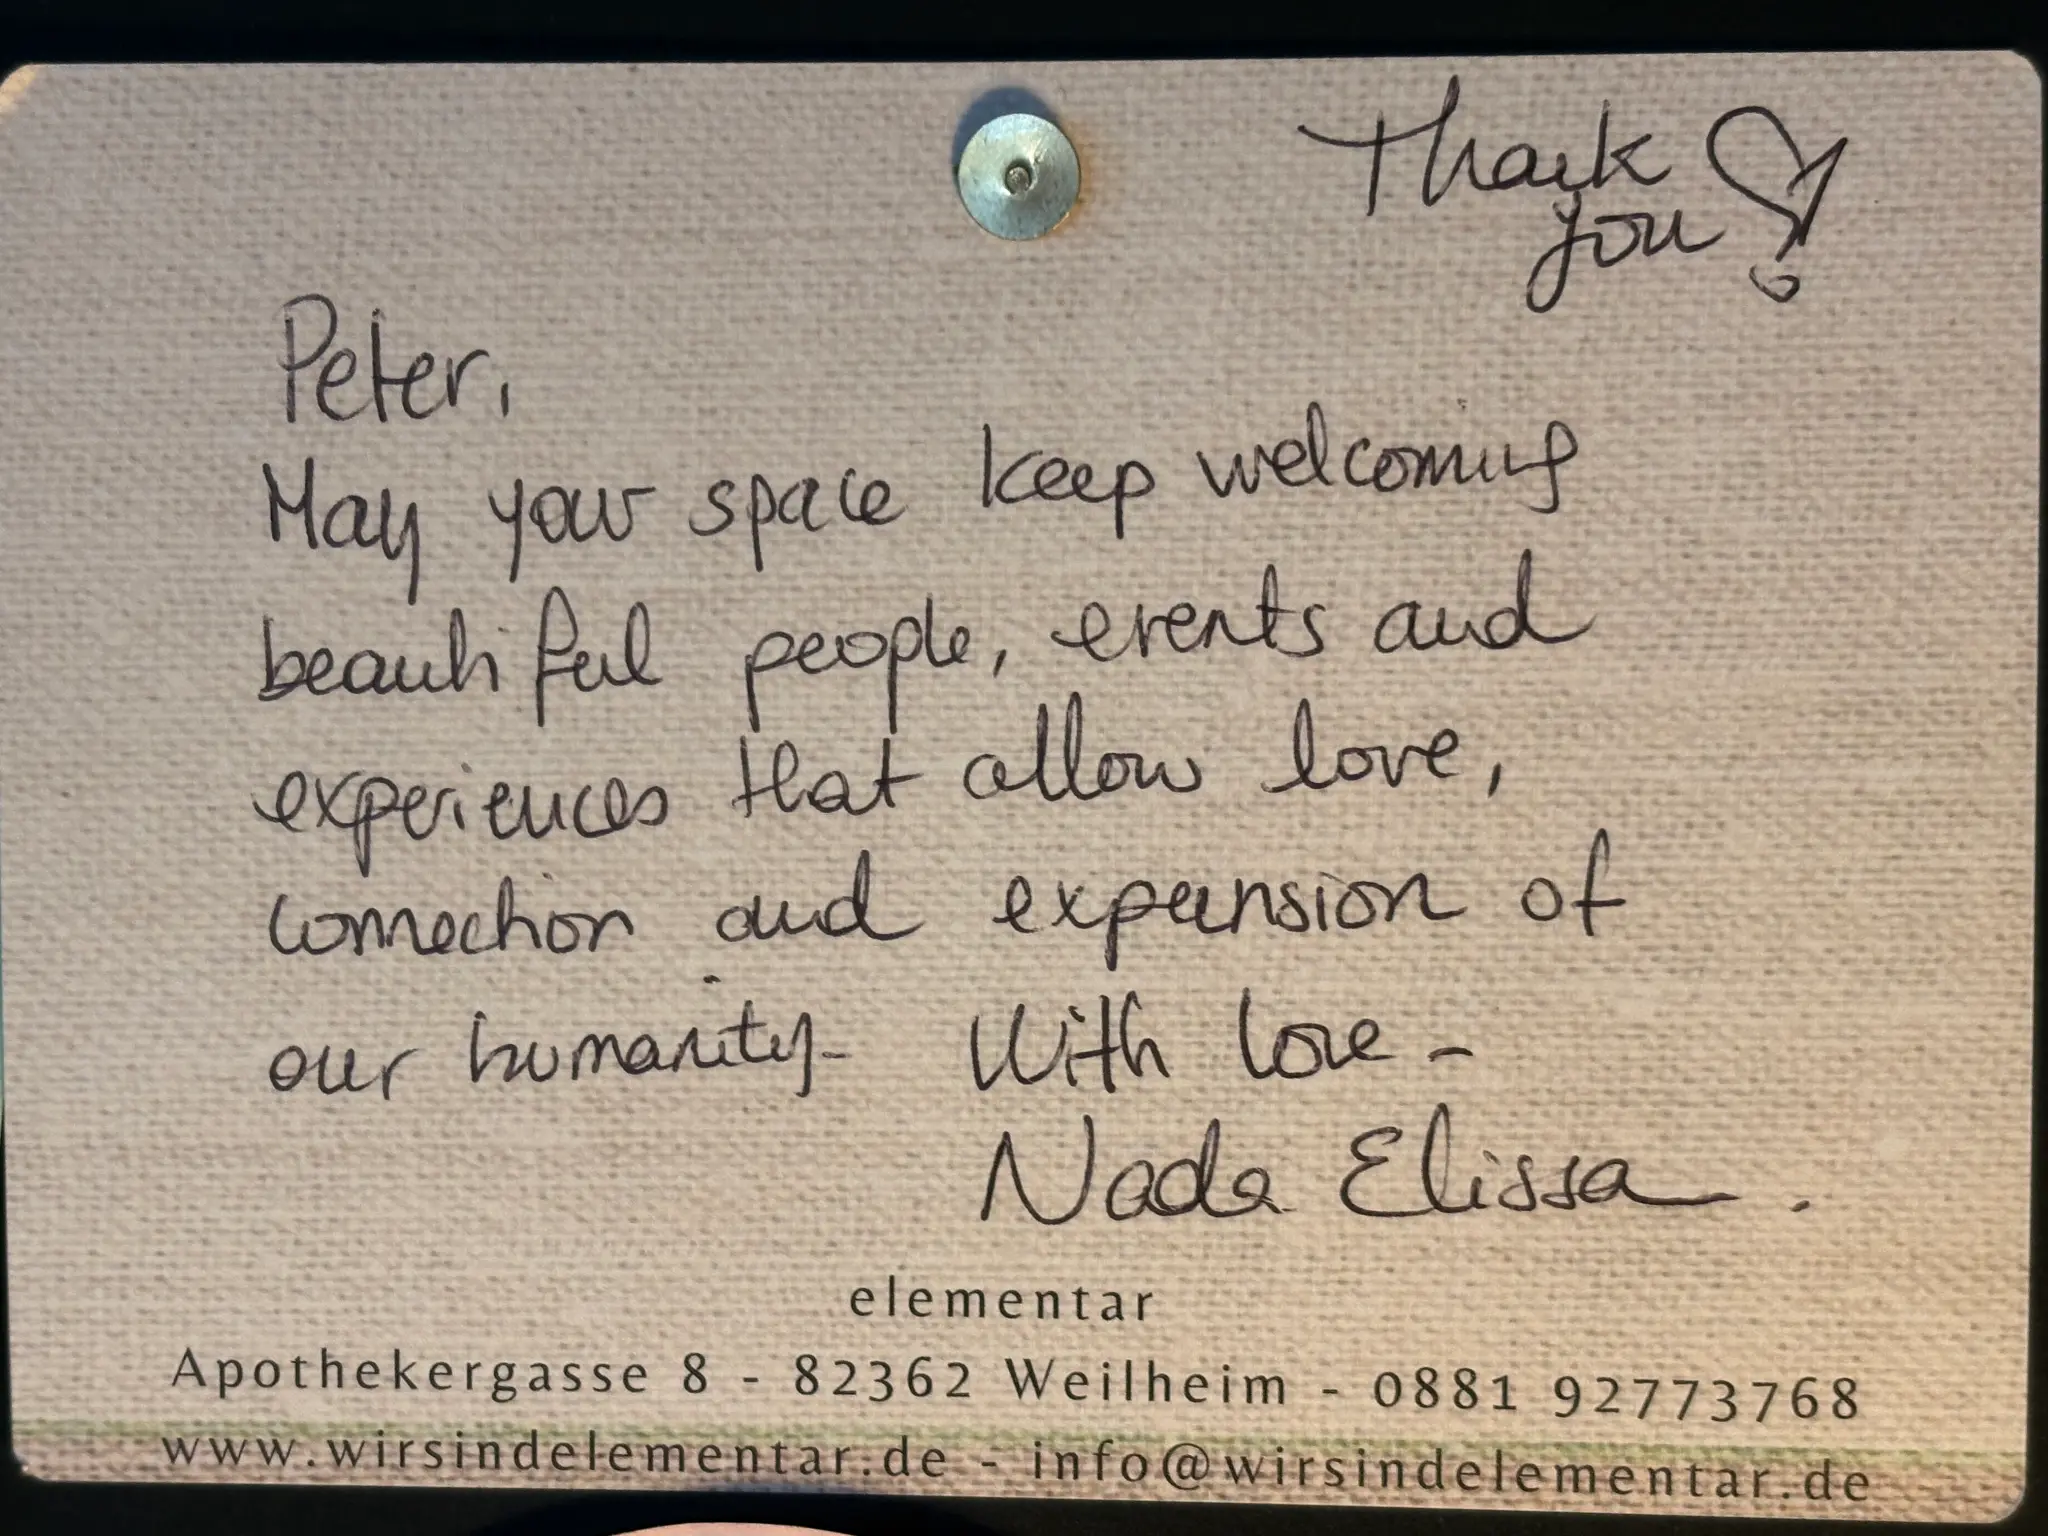 Thank
you
Peter,
May your space keep welcoming
beautiful people, events and
experiences that allow love,
connection and expansion of
our humanity- With love -
Nada Elissa.
elementar
Apothekergasse 8 - 82362 Weilheim - 0881 92773768
www.wirsindelementar.de - info@wirsindelementar.de